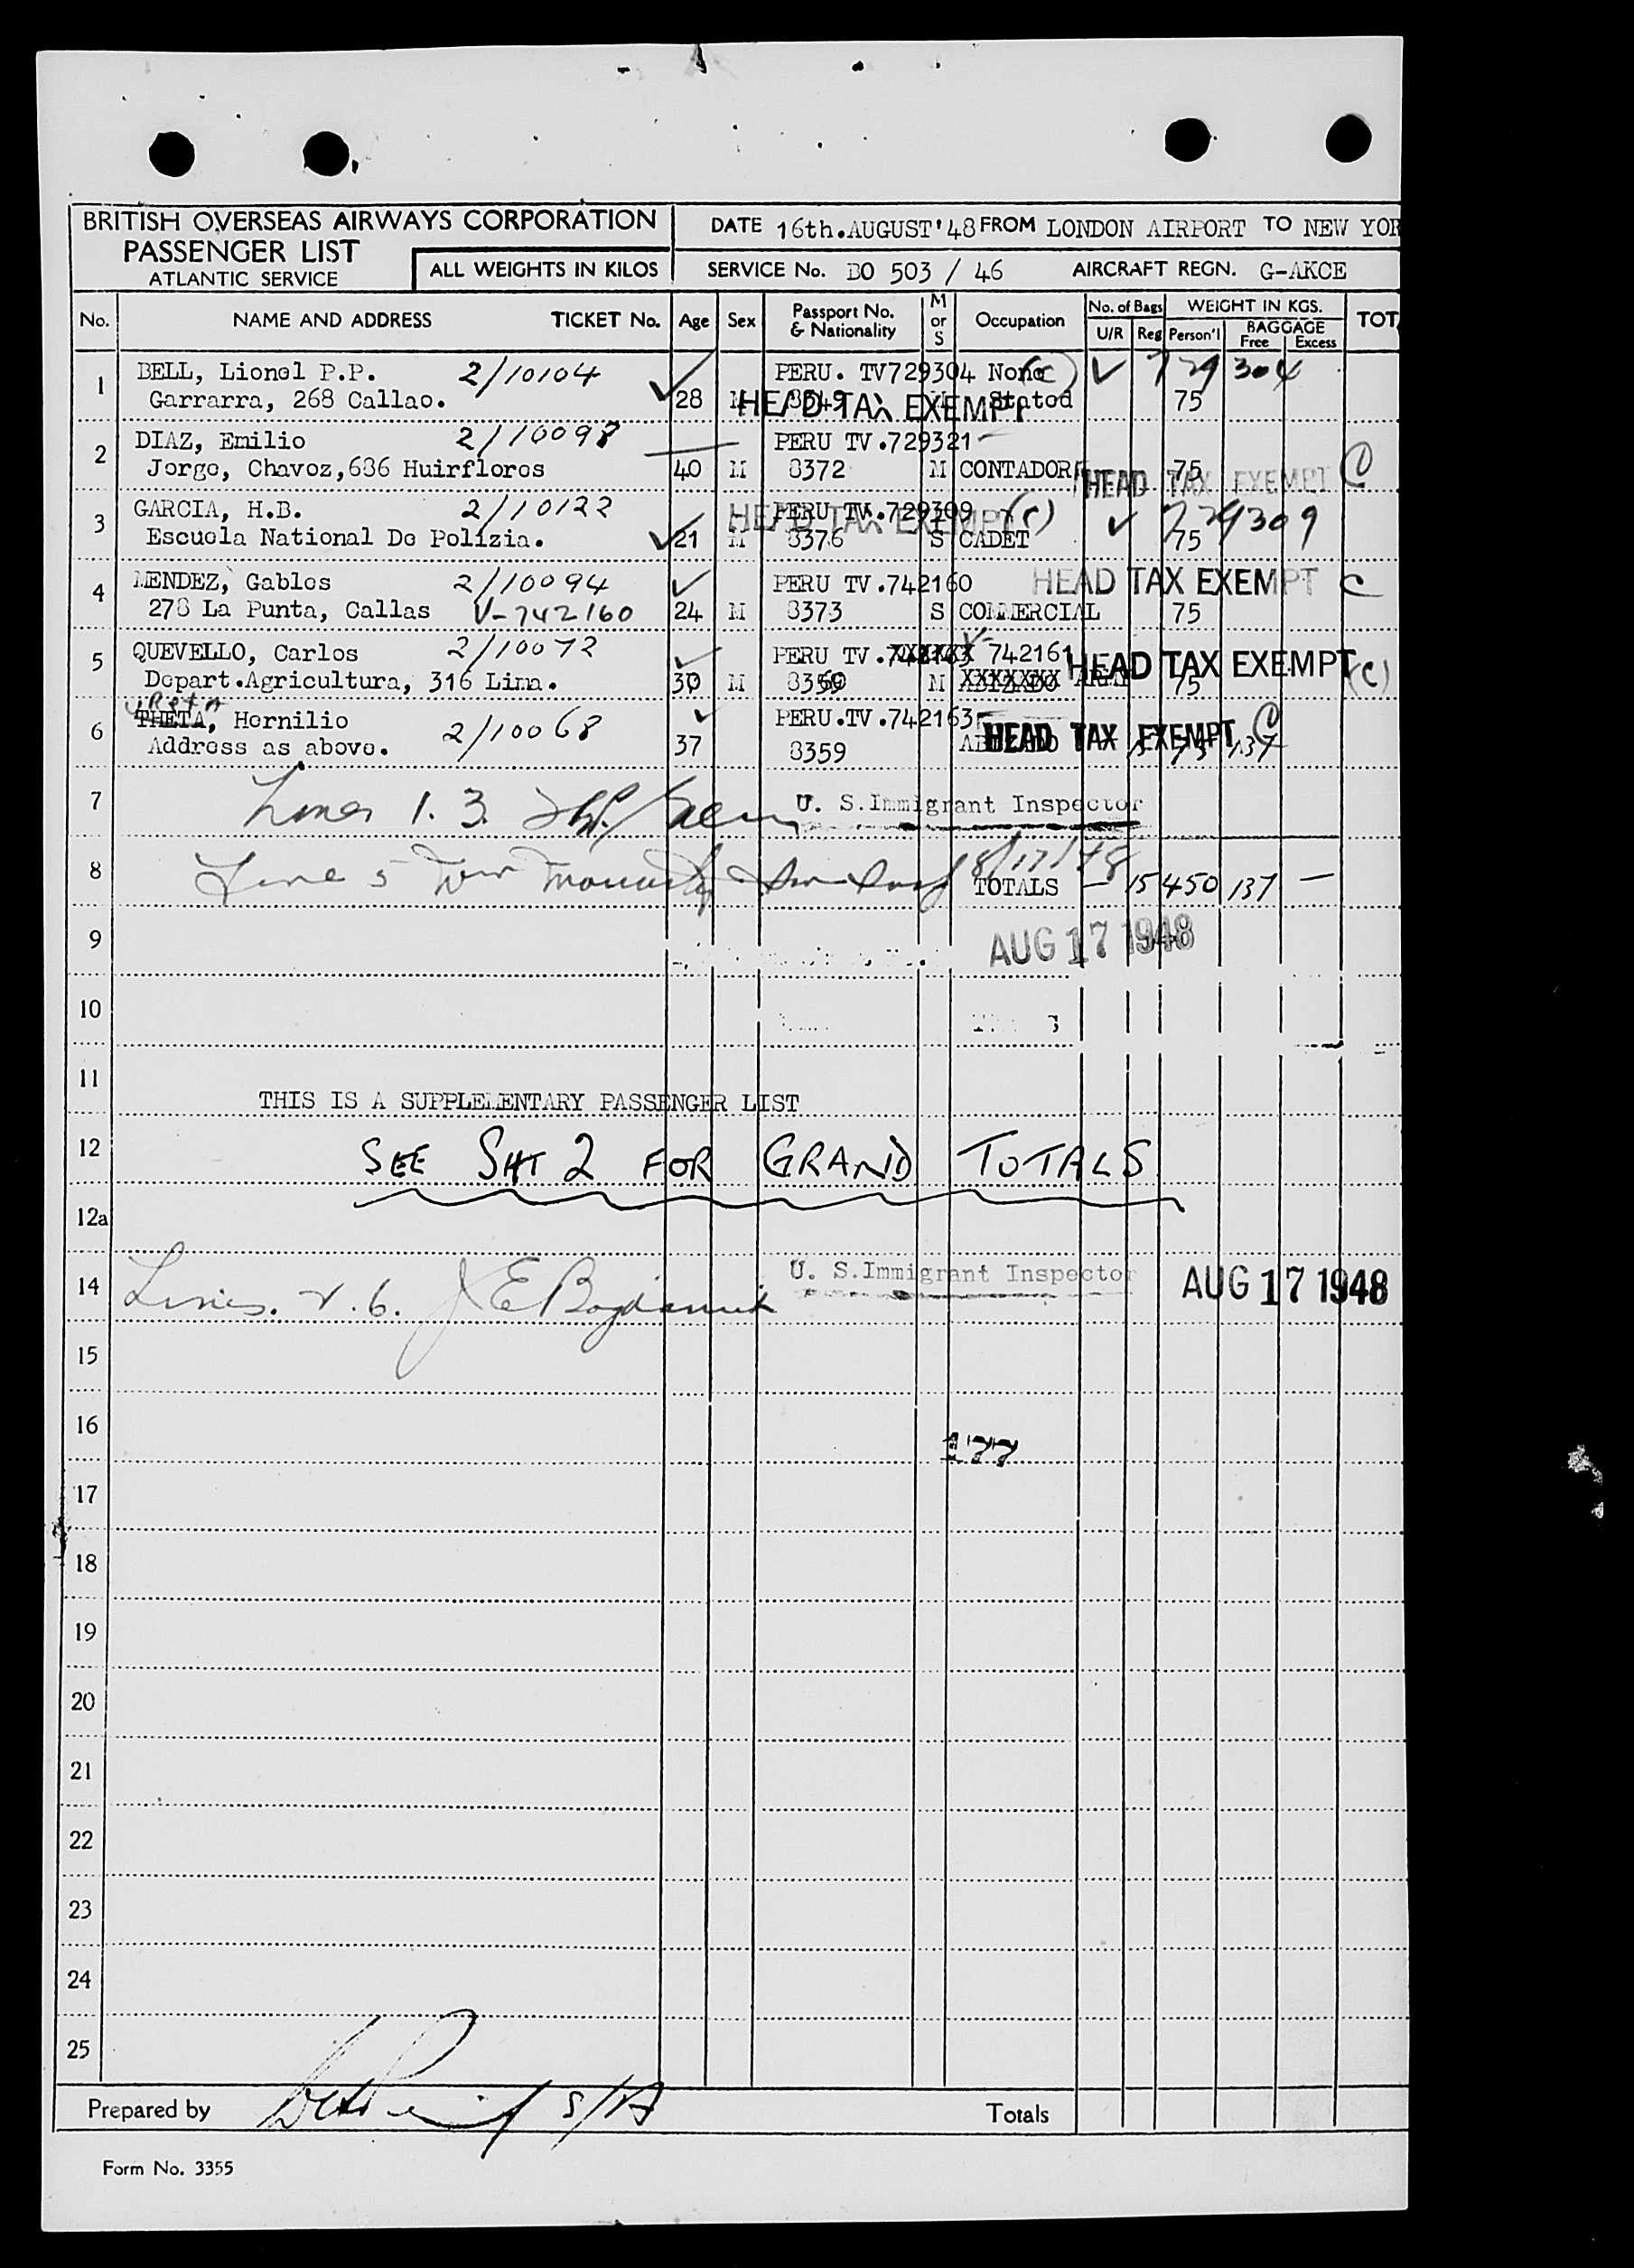 BRITISH OVERSEAS AIRWAYS CORPORATION
PASSENGER LIST
ATLANTIC SERVICE
ALL WEIGHTS IN KILOS
DATE 16th.AUGUST'48 FROM LONDON AIRPORT TO NEW YOR
SERVICE No. BO 503 / 46 AIRCRAFT REGN. G-AKCE
No. NAME AND ADDRESS TICKET No. Age Sex Passport No. & Nationality M or S Occupation No. of Bags U/R Reg WEIGHT IN KGS. Person'l BAGGAGE Free Excess TOT
1 BELL, Lionel P.P. 2/10104 PERU. TV729304 None (c) 729304
Garrarra, 268 Callao. 28 M 8349 M Stated 75
HEAD TAX EXEMPT
2 DIAZ, Emilio 2/10098 PERU TV.729321
Jorge, Chavez,686 Huirflores 40 M 8372 M CONTADOR 75
HEAD TAX EXEMPT C
3 GARCIA, H.B. 2/10122 PERU TV.729309 (c) 729309
Escuela National De Polizia. 21 M 8376 S CADET 75
HEAD TAX EXEMPT
4 MENDEZ, Gables 2/10094 PERU TV.742160 HEAD TAX EXEMPT C
278 La Punta, Callas V-742160 24 M 8373 S COMMERCIAL 75
5 QUEVELLO, Carlos 2/10072 PERU TV. 742161 V-
Depart.Agricultura, 316 Lima. 30 M M 75
HEAD TAX EXEMPT (c)
6 THETA, Hernilio 2/10068 PERU.TV.742163
Address as above. 37 8359 15 75 137
HEAD TAX EXEMPT C
7 Lines 1. 3. U. S. Immigrant Inspector
8 Line 5 8/17/48
TOTALS — 15 450 137 —
9 AUG 17 1948
10
11 THIS IS A SUPPLEMENTARY PASSENGER LIST
12 SEE SHT 2 FOR GRAND TOTALS
12a
14 Lines. 2. 6. U. S. Immigrant Inspector AUG 17 1948
15
16
17
18
19
20
21
22
23
24
25
Prepared by Totals
Form No. 3355